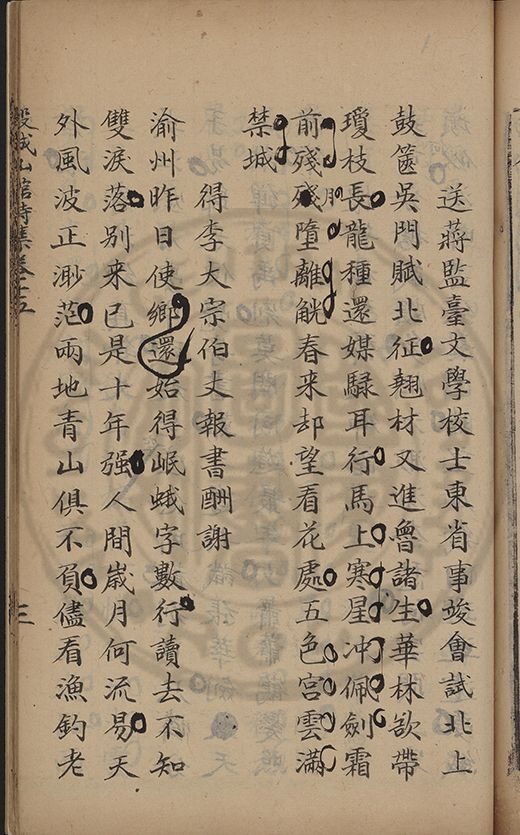 送蔣監臺文學校士東省事竣會試北上
鼓篋吳門賦北征翹材又進魯諸生華林欲帶
瓊枝長龍種還媒騄耳行馬上寒星冲佩劍霜
前殘月墮離觥春来却望看花處五色宮雲滿
禁城
得李大宗伯丈報書酬謝
渝州昨日使鄉還始得岷蛾字數行讀去不知
雙淚落別來已是十年强人間歲月何流易天
外風波正渺茫兩地青山俱不負儘看漁釣老
穀城山館詩集卷十五
三